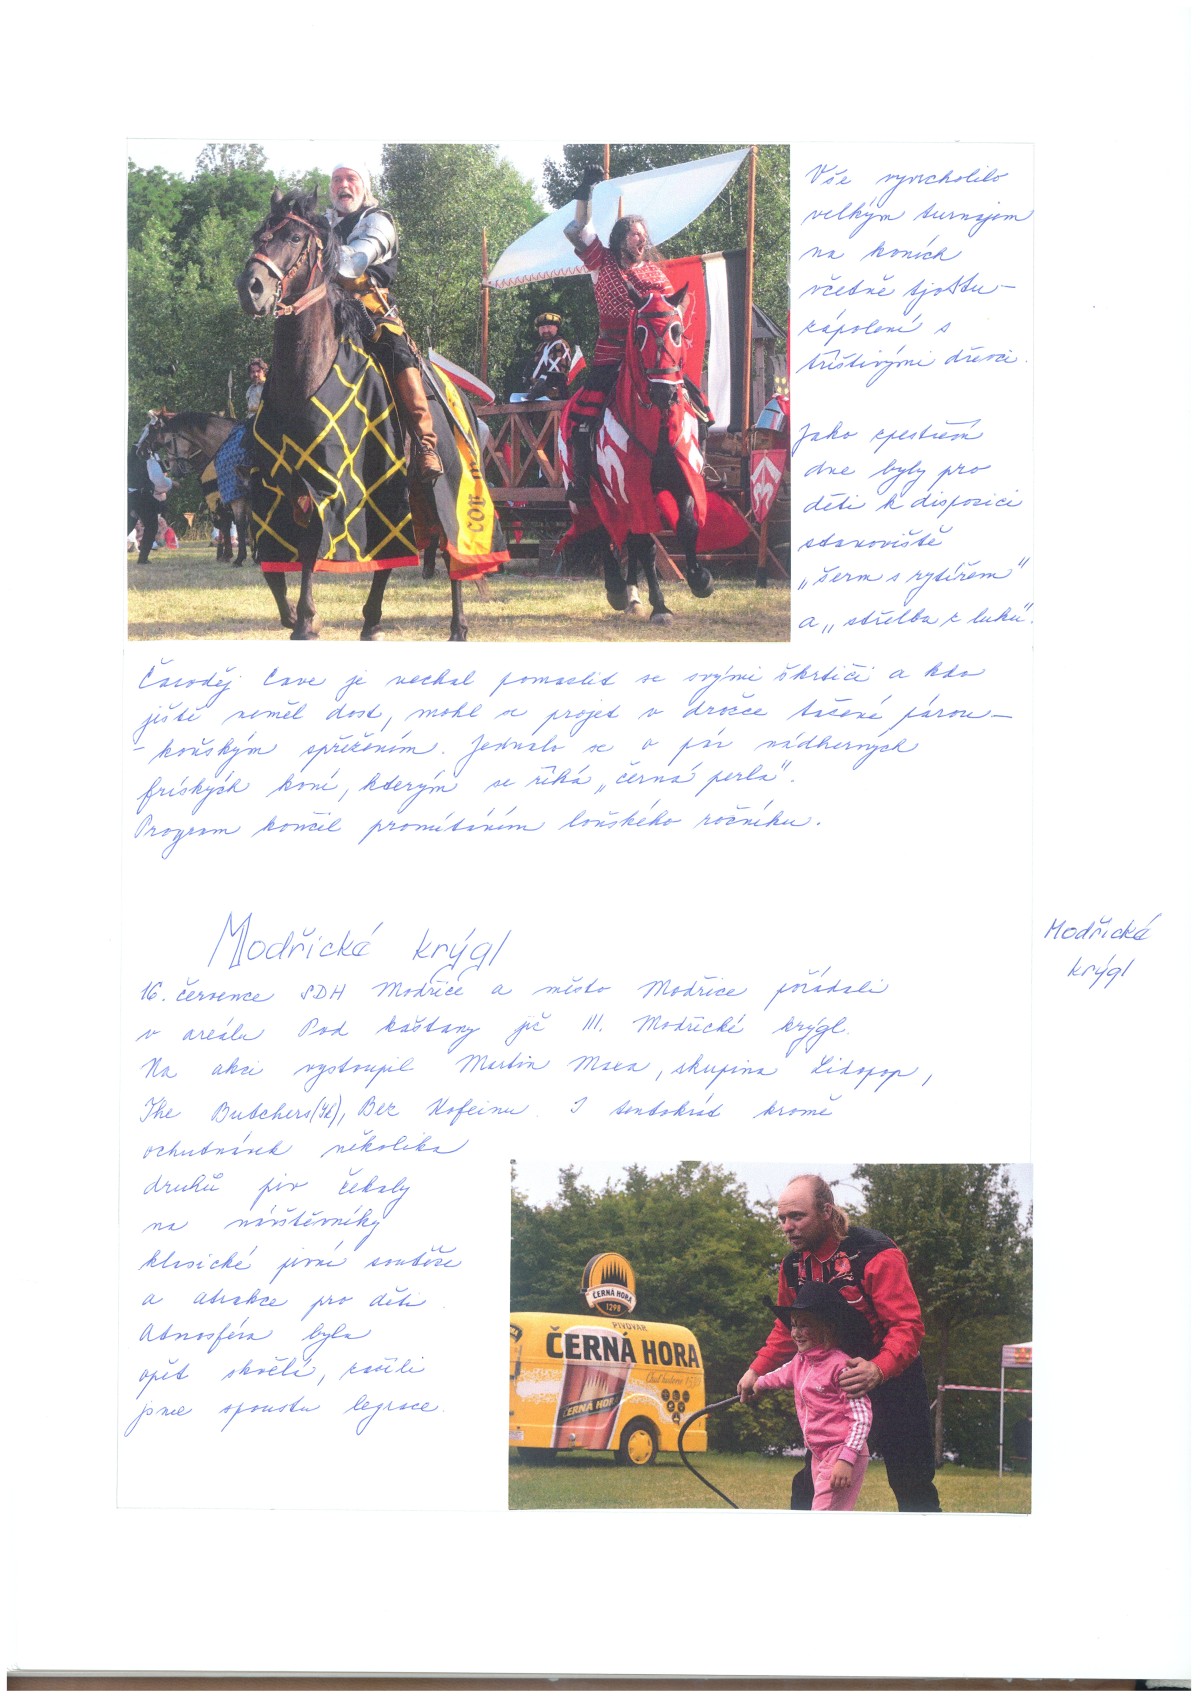 Vše vyvrcholilo
velkým turnajem
na koních
včetně tjostu -
zápolení s
tříštivými dřevci.
Jako zpestření
dne byly pro
děti k dispozici
stanoviště
„šerm s rytířem"
a „střelba z luku".
Čaroděj Cave je nechal pomazlit se svými škrtiči a kdo
ještě neměl dost, mohl se projet v drožce tažené párou-
- koňským spřežením. Jednalo se o pár nádherných
fríských koní, kterým se říká „černá perla".
Program končil promítáním loňského ročníku.
Modřické krýgl
Modřické
krýgl
16. července SDH Modřice a město Modřice pořádali
v areálu Pod kaštany již III. Modřické krýgl.
Na akci vystoupil Martin Maxa, skupina Lidopop,
The Butchers, Bez Kofeinu. I tentokrát kromě
ochutnávek několika
druhů piv čekaly
na návštěvníky
klasické pivní soutěže
a atrakce pro děti.
Atmosféra byla
opět skvělá, zažili
jsme spoustu legrace.
ČERNÁ HORA
1298
PIVOVAR
ČERNÁ HORA
ČERNÁ HORA